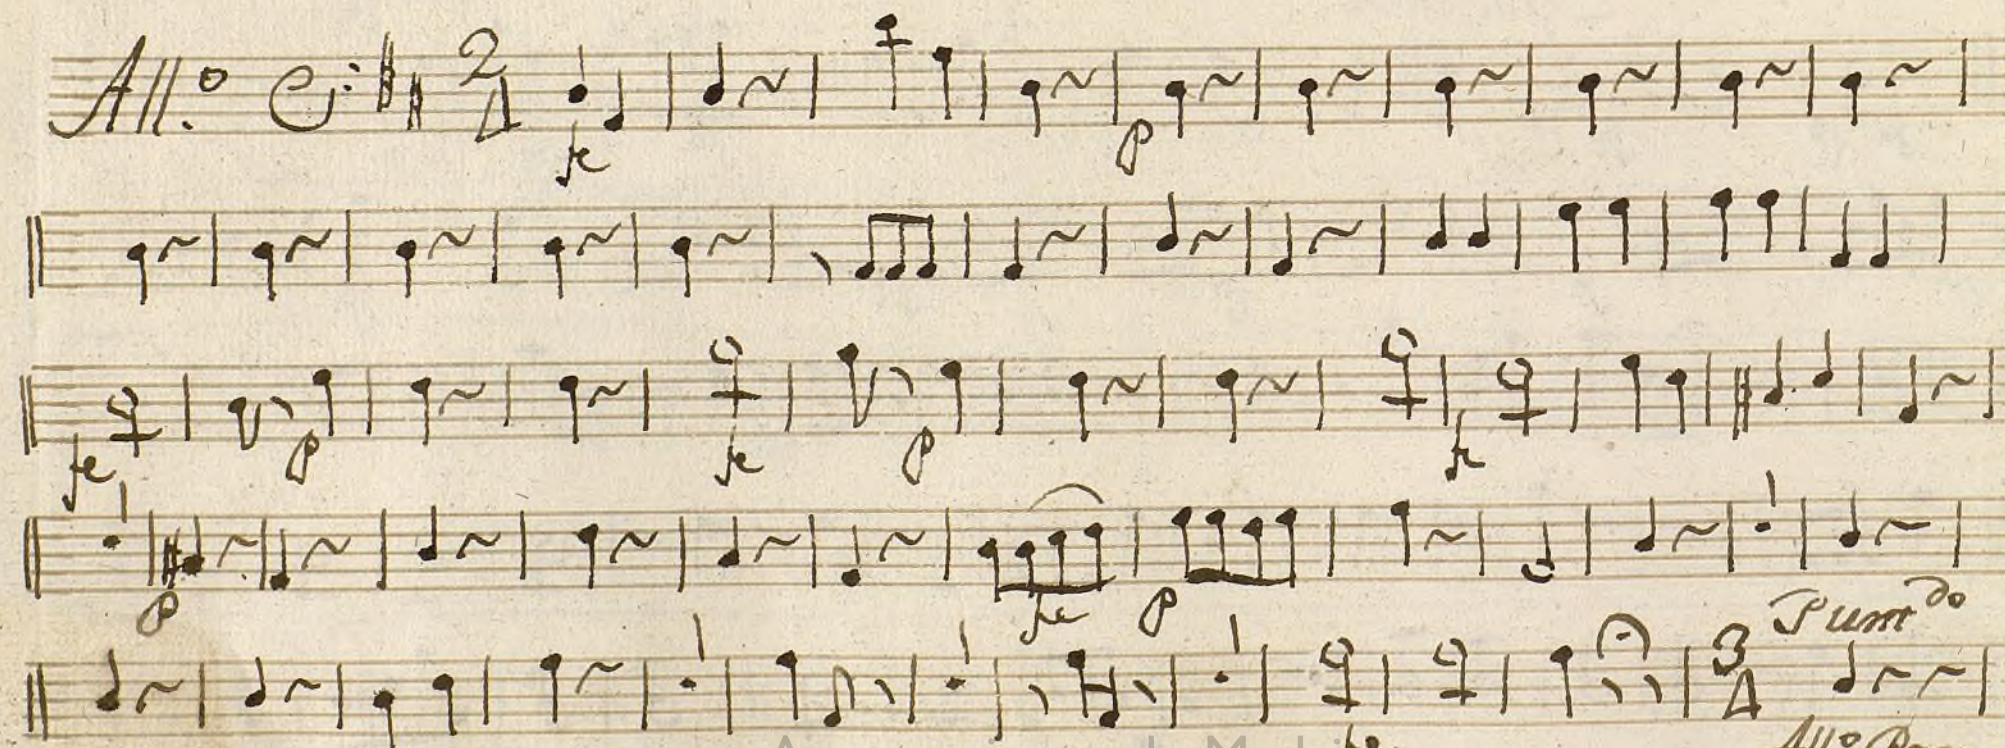 All.º 2 4
fe P
fe P fe P fe
P fe P Punt.do
3 4